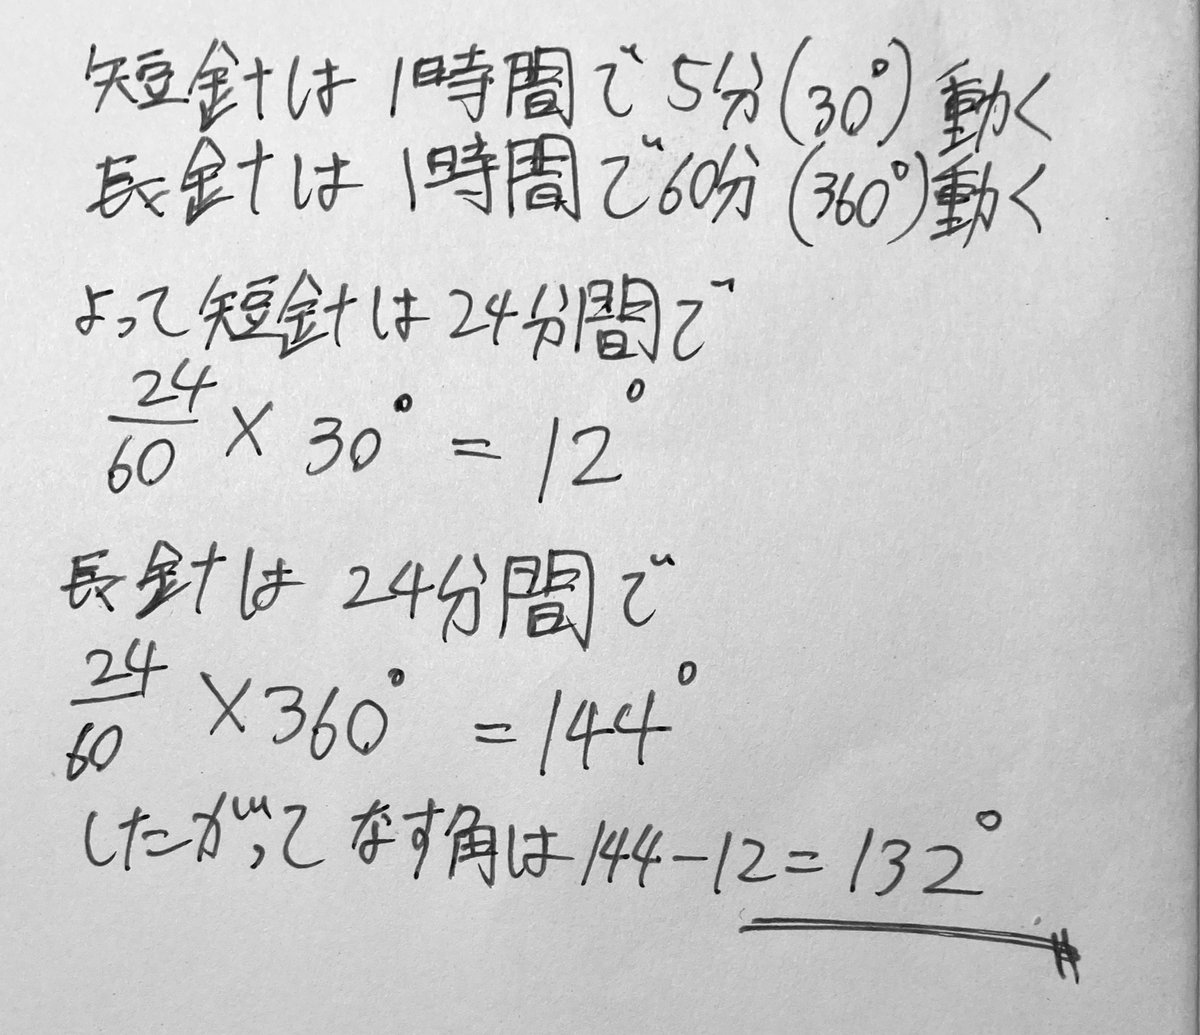 短針は1時間で5分(30°)動く
長針は1時間で60分(360°)動く
よって短針は24分間で
24/60 × 30° = 12°
長針は24分間で
24/60 × 360° = 144°
したがってなす角は144-12=132°